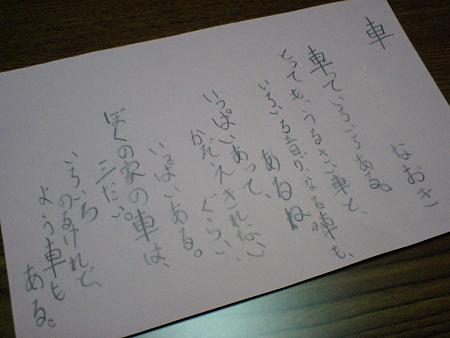 車
なおき
車ていろいろある。
とっても、うるさい車と、
いろいろ音がなる車も、
あるね
いっぱいあって、
かぞえきれない
ぐらい、
いっぱいある。
ぼくの家の車は、
三だい。
いろいろ
のるけれど、
よう車も
ある。